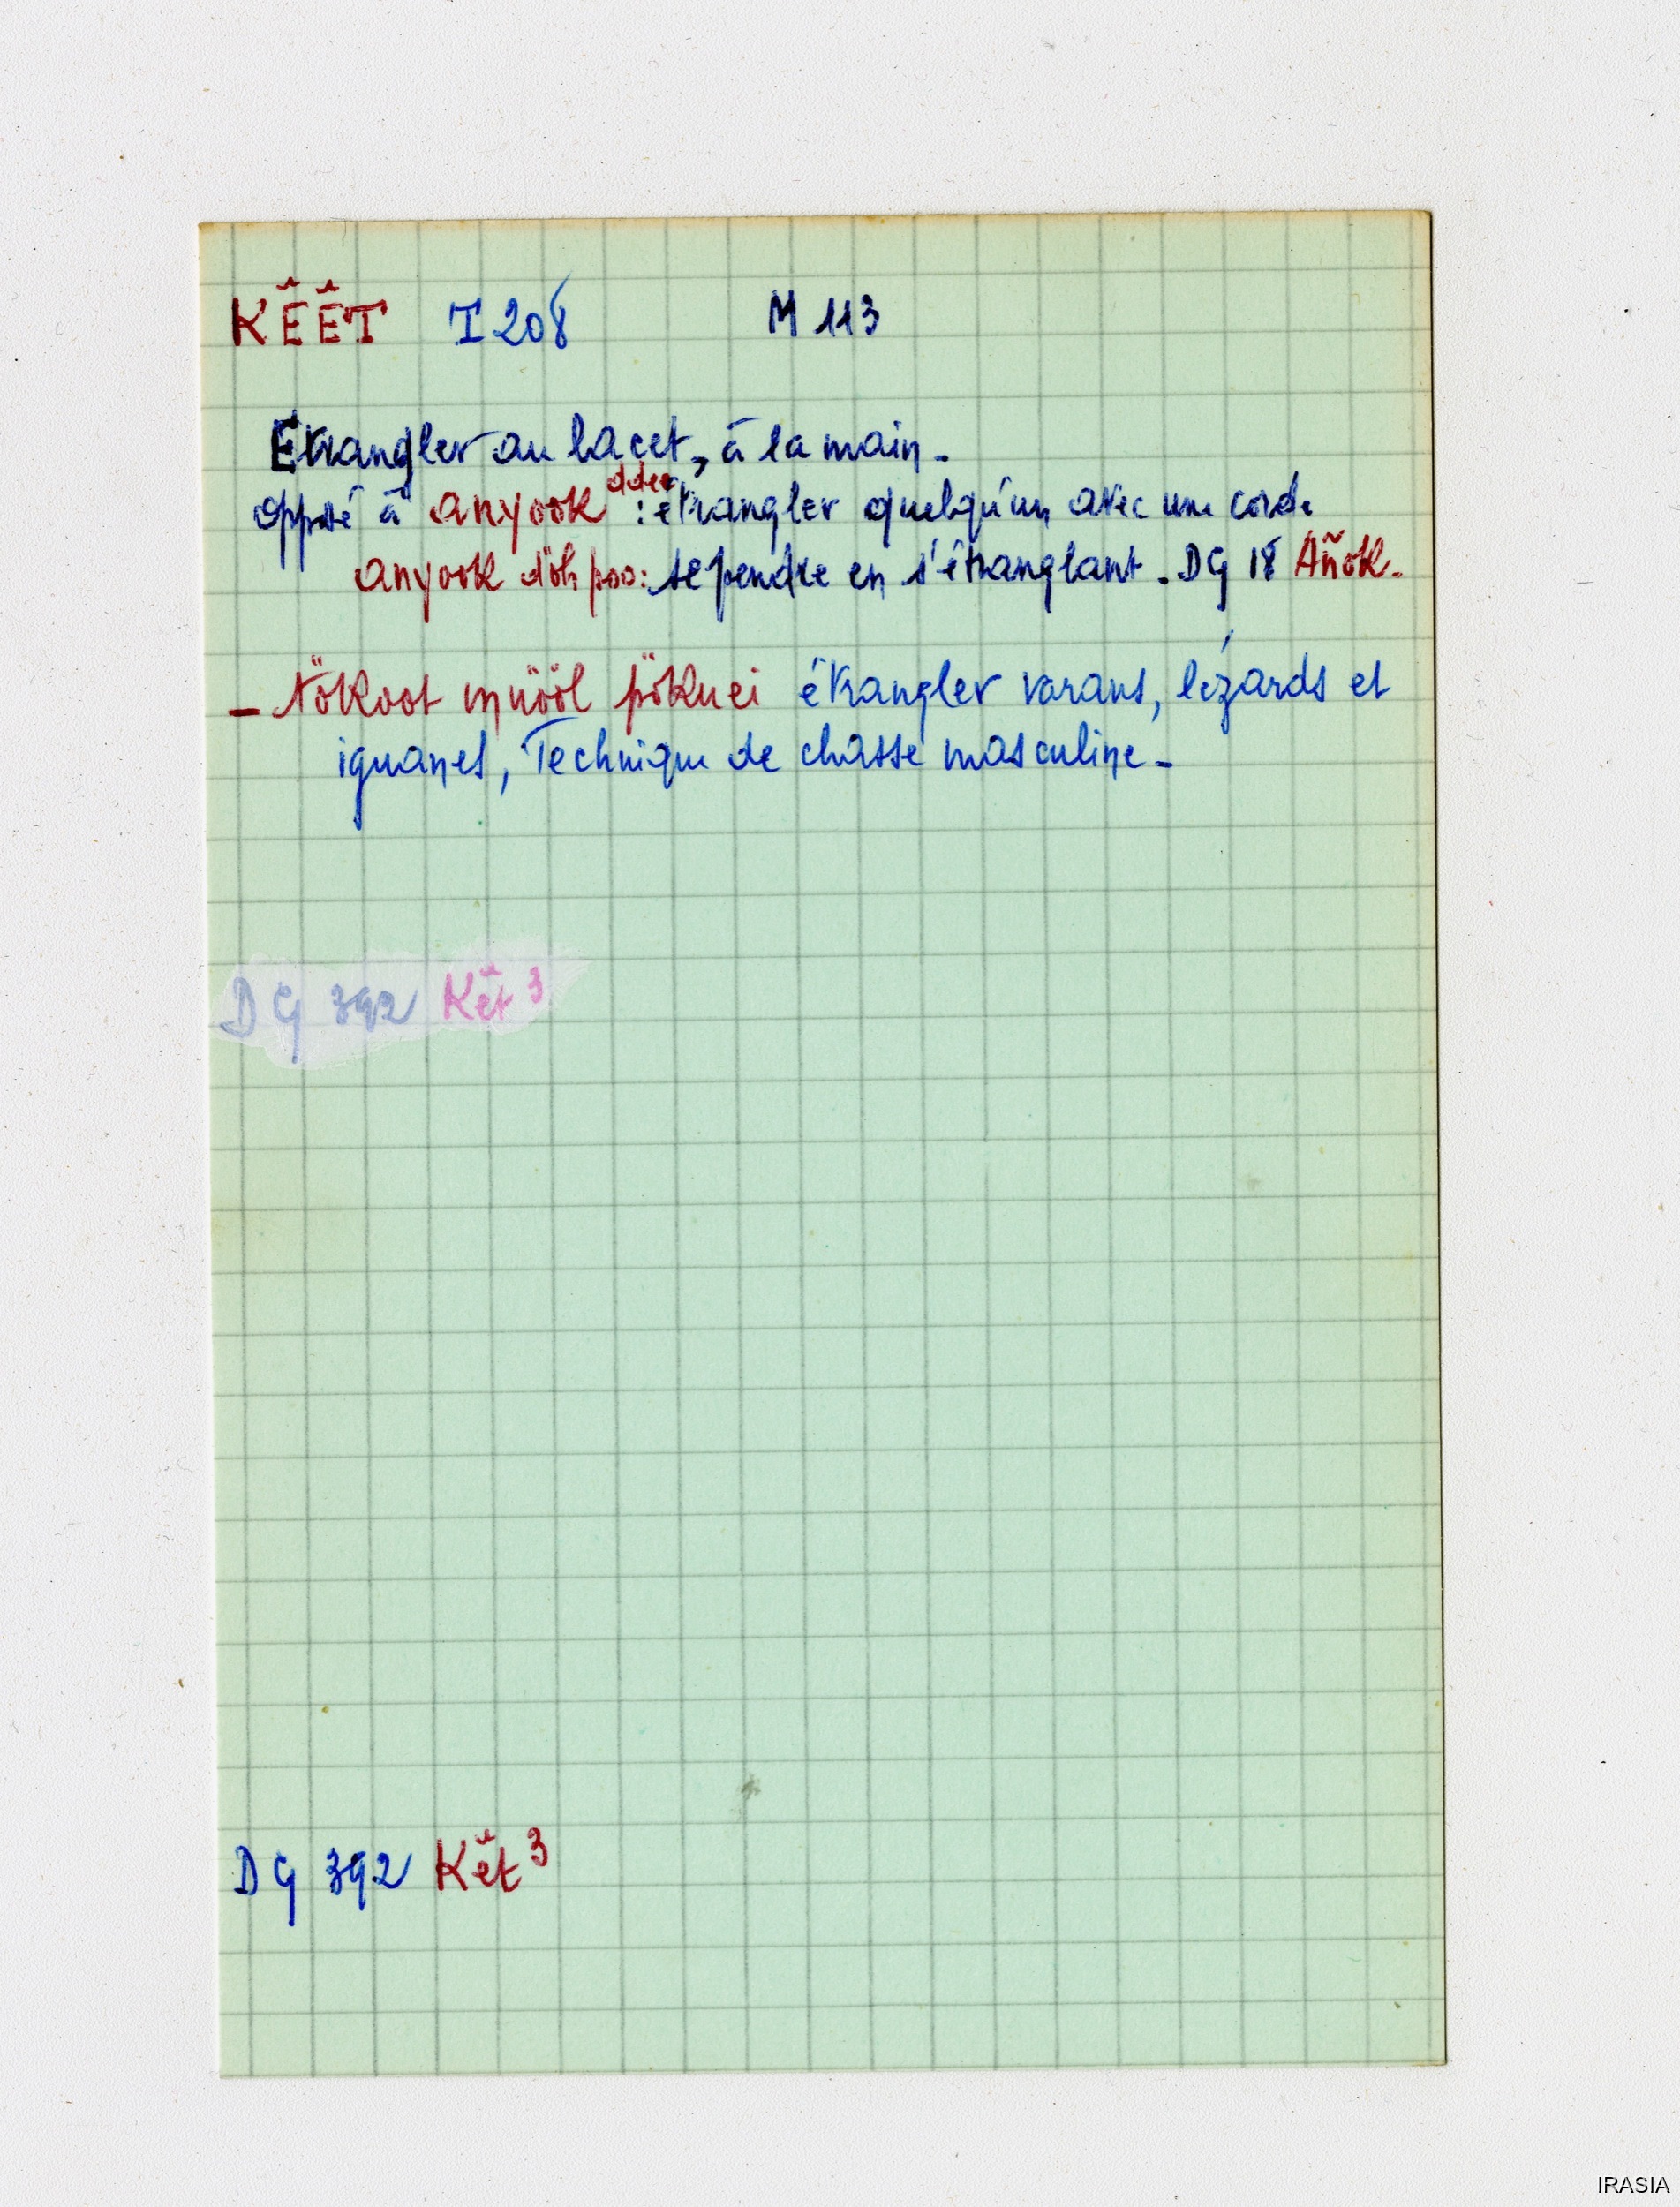 KÊ̆Ê̆T I 208 M 113
Etrangler au lacet, à la main.
opposé à anyook ddee : étrangler quelqu'un avec une corde
anyook döh poo : se pendre en s'étranglant. DG 18 Añŏk.
_ Nökoot mjööl pöknei étrangler varans, lézards et
iguanes, Technique de chasse masculine -
DG 392 Kêt 3
DG 392 Kêt 3
IRASIA